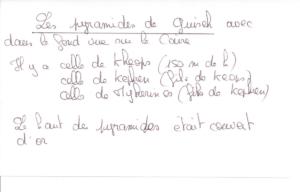 Les pyramides de Guiseh avec
dans le fond vue sur le Caire
Il y a celle de Kheops (150 m de h)
celle de Kephen (fils de Keops)
celle de Mykerinos (fils de Kephen)
Le haut de pyramides était couvert
d'or